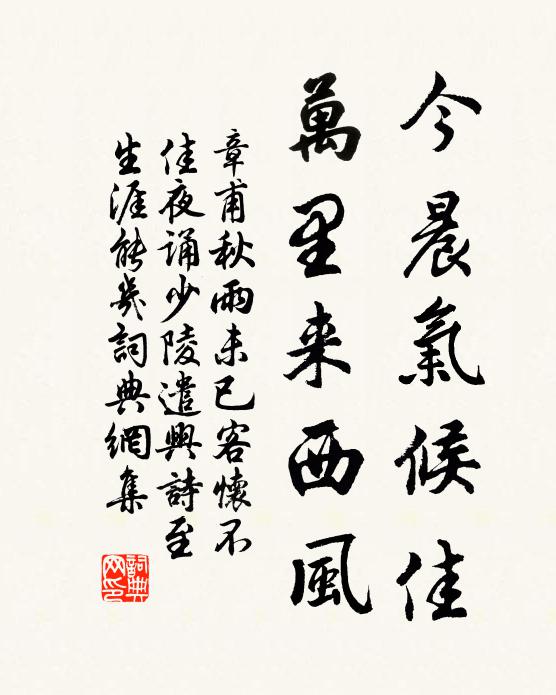 今晨氣候佳
萬里来西風
章甫秋雨未已客懷不
佳夜誦少陵遣興詩至
生涯能幾詞典網集
詞典
网印